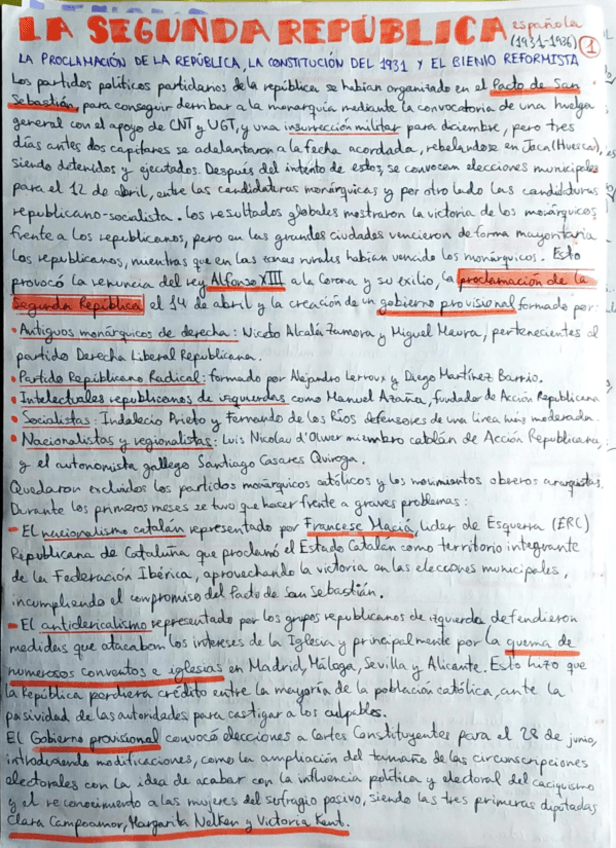 LA SEGUNDA REPÚBLICA española
(1931-1936) 1
LA PROCLAMACIÓN DE LA REPÚBLICA, LA CONSTITUCIÓN DEL 1931 Y EL BIENIO REFORMISTA
Los partidos políticos partidarios de la república se habían organizado en el Pacto de San
Sebastián, para conseguir derribar a la monarquía mediante la convocatoria de una huelga
general con el apoyo de CNT y UGT, y una insurrección militar para diciembre, pero tres
días antes dos capitares se adelantaron a la fecha acordada, rebelándose en Jaca (Huesca),
siendo detenidos y ejecutados. Después del intento de estos, se convocan elecciones municipales
para el 12 de abril, entre las candidaturas monárquicas y por otro lado las candidaturas
republicano-socialista. Los resultados globales mostraron la victoria de los monárquicos
frente a los republicanos, pero en las grandes ciudades vencieron de forma mayoritaria
los republicanos, mientras que en las zonas rurales habían vencido los monárquicos. Esto
provocó la renuncia del rey Alfonso XIII a la Corona y su exilio, la proclamación de la
Segunda República el 14 de abril y la creación de un gobierno provisional formado por:
• Antiguos monárquicos de derecha: Niceto Alcalá Zamora y Miguel Maura, pertenecientes al
partido Derecha Liberal Republicana.
• Partido Republicano Radical: formado por Alejandro Lerroux y Diego Martínez Barrio.
• Intelectuales republicanos de izquierdas como Manuel Azaña, fundador de Acción Republicana
• Socialistas: Indalecio Prieto y Fernando de los Ríos defensores de una línea más moderada.
• Nacionalistas y regionalistas: Luis Nicolau d'Olwer miembro catalán de Acción Republicana,
y el autonomista gallego Santiago Casares Quiroga.
Quedaron excluidos los partidos monárquicos católicos y los movimientos obreros anarquistas.
Durante los primeros meses se tuvo que hacer frente a graves problemas:
- El nacionalismo catalán representado por Francesc Macià, líder de Esquerra (ERC)
Republicana de Cataluña que proclamó el Estado Catalán como territorio integrante
de la Federación Ibérica, aprovechando la victoria en las elecciones municipales,
incumpliendo el compromiso del Pacto de San Sebastián.
- El anticlericalismo representado por los grupos republicanos de izquierda defendieron
medidas que atacaban los intereses de la Iglesia y principalmente por la quema de
numerosos conventos e iglesias en Madrid, Málaga, Sevilla y Alicante. Esto hizo que
la República perdiera crédito entre la mayoría de la población católica, ante la
pasividad de las autoridades para castigar a los culpables.
El Gobierno provisional convocó elecciones a Cortes Constituyentes para el 28 de junio,
introduciendo modificaciones, como la ampliación del tamaño de las circunscripciones
electorales con la idea de acabar con la influencia política y electoral del caciquismo
y el reconocimiento a las mujeres del sufragio pasivo, siendo las tres primeras diputadas
Clara Campoamor, Margarita Nelken y Victoria Kent.